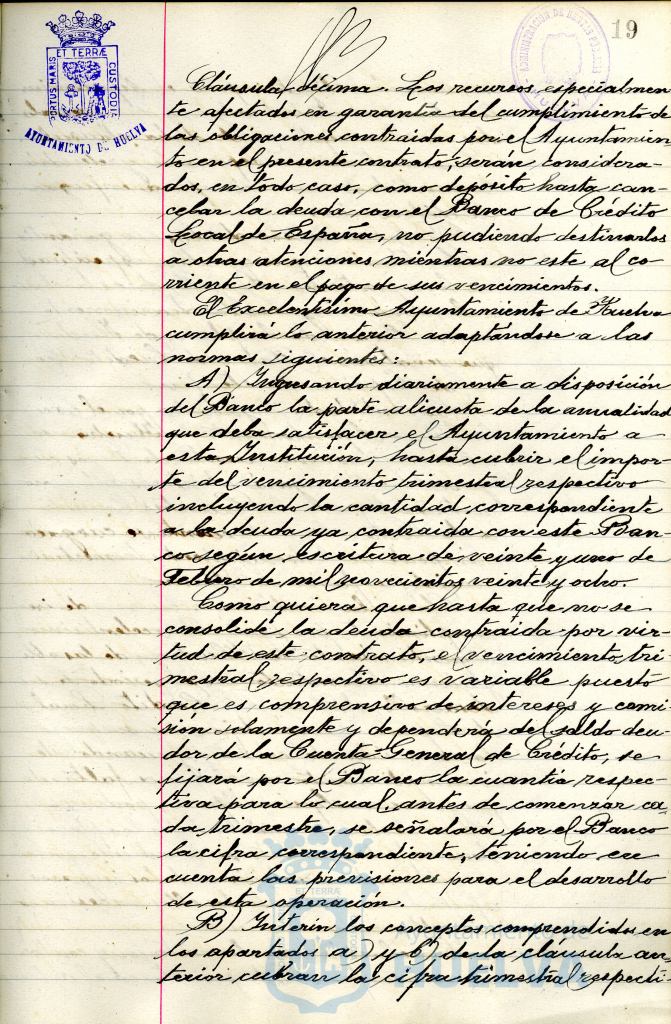 19
PORTUS MARIS ET TERRÆ CUSTODIA
AYUNTAMIENTO DE HUELVA
Cláusula décima. Los recursos especialmen-
te afectados en garantía del cumplimiento de
las obligaciones contraidas por el Ayuntamien-
to en el presente contrato, serán considera-
dos, en todo caso, como depósito hasta can-
celar la deuda con el Banco de Crédito
Local de España, no pudiendo destinarlos
a otras atenciones mientras no este al co-
rriente en el pago de sus vencimientos.
El Excelentísimo Ayuntamiento de Huelva
cumplirá lo anterior adaptándose a las
normas siguientes:
A) Ingresando diariamente a disposición
del Banco la parte alicuota de la anualidad
que deba satisfacer el Ayuntamiento a
esta Institución, hasta cubrir el impor-
te del vencimiento trimestral respectivo
incluyendo la cantidad correspondiente
a la deuda ya contraida con este Ban-
co según escritura de veinte y uno de
Febrero de mil novecientos veinte y ocho.
Como quiera que hasta que no se
consolide la deuda contraida por vir-
tud de este contrato, el vencimiento tri-
mestral respectivo es variable puesto
que es comprensivo de intereses y comi-
sión solamente y dependerá del saldo deu-
dor de la Cuenta General de Crédito, se
fijará por el Banco la cuantía respec-
tiva para lo cual, antes de comenzar ca-
da trimestre, se señalará por el Banco
la cifra correspondiente, teniendo en
cuenta las previsiones para el desarrollo
de esta operación.
B) Interin los conceptos comprendidos en
los apartados a) y b) de la cláusula an-
terior cubran la cifra trimestral respecti-